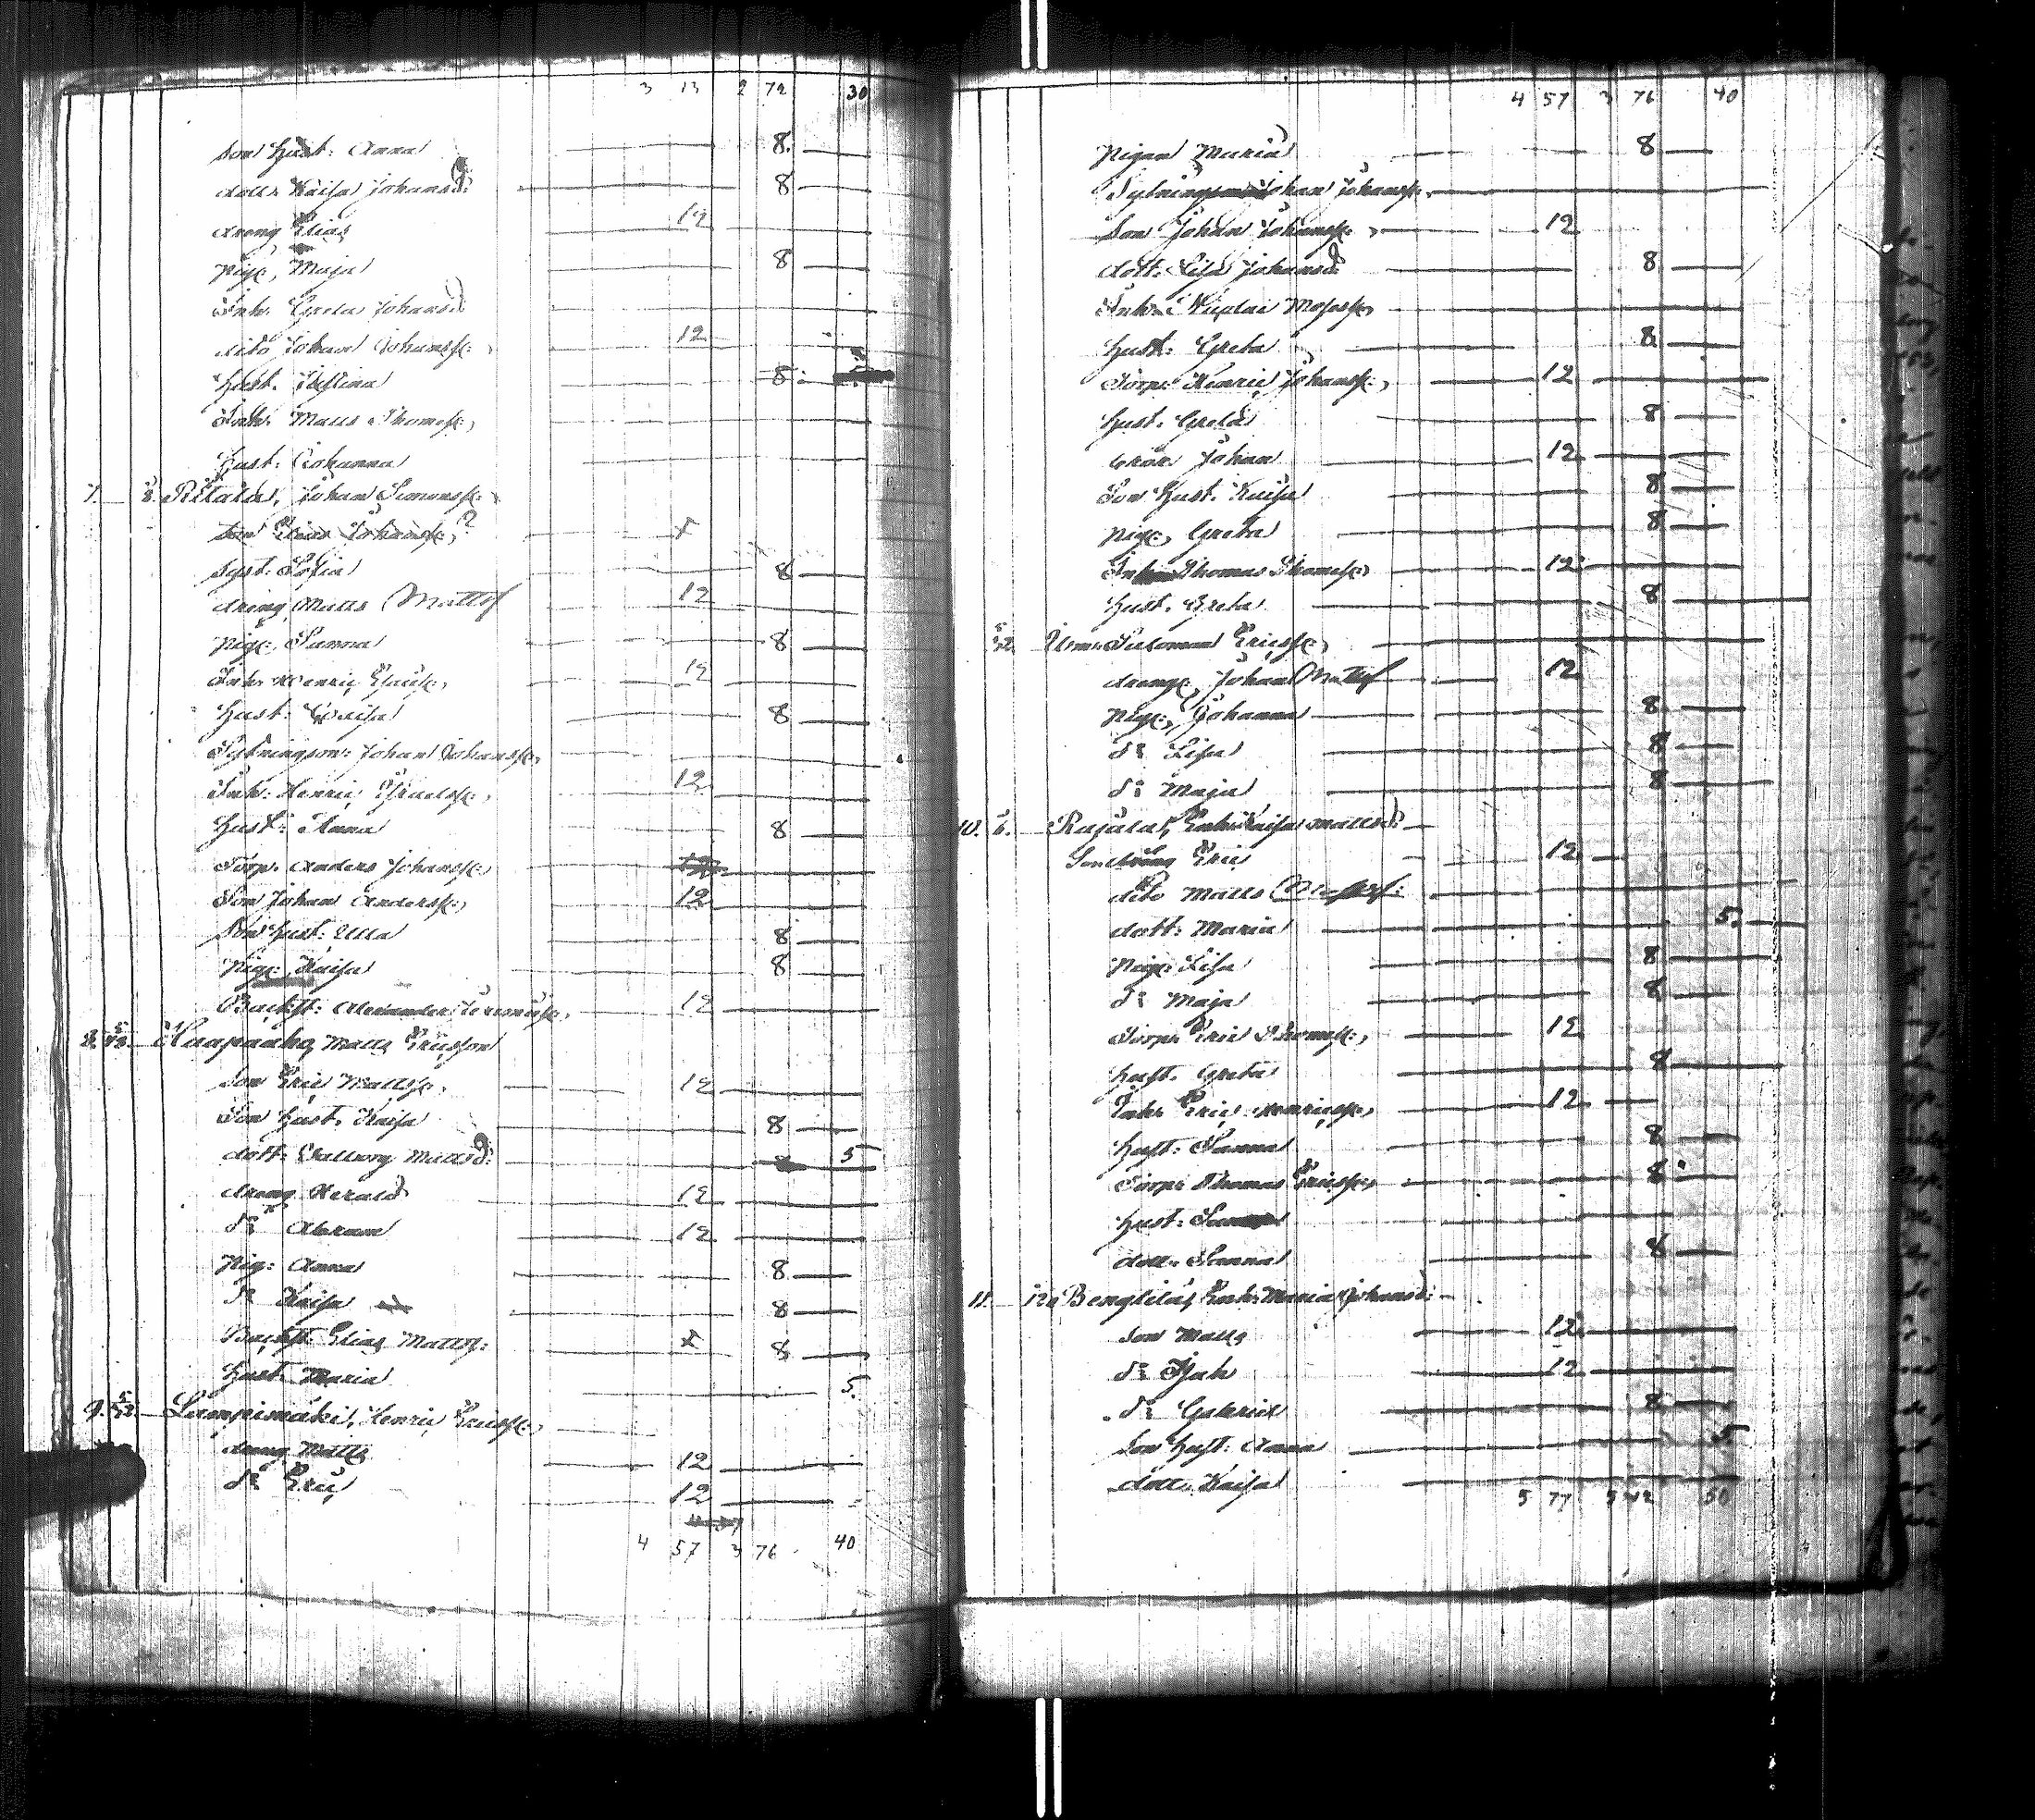 3 13 2 72 30
Son Hust: Anna 8.
dott: Kaisa Johansd: 8
dreng Elias 12
Pig:, Maja 8
Inh. Greta Johansd
dito Johan Johanss: 12
Hust. Justina 8
Inh. Matts Thomass:
Hust: Johanna
7. Ritala, Johan Simonss:
Son Elias Johanss: x
Syst: Sofia 8
dreng Matts Mattss 12
Pig:, Sanna 8
Inh. Henric 12
Hust: Caisa 8
Sytningson: Johan Johanss:
Inh: Henric 12
Hust: Anna 8
Torp. Anders Johanss: 12
Son Johan Anderss: 12
Son Hust: Ulla 8
Pig: Kaisa 8
Backst: Alexander 12
8. Haapaaho, Matts Ericsson
Son Eric Mattss: 12
Son Hust. Kaisa 8
dott: Wallborg Mattsd: 5
dreng Herald 12
d:o Abram 12
Pig: Anna 8
d:o Kaisa 8
Backst: Elias Mattss: x 8
Hust: Maria 5.
9. Lampimäki, Henric Ericss:
dreng Matts 12
d:o Eric 12
4 57 3 76 40
4 57 3 76 40
Pigan Maria 8
Sytningsman Johan Johanss:
Son Johan Johanss: 12
dott: Lisa Johansd: 8
Inh: Nicolai Mosess:
Hust: Greta 8
Torp: Henric Johanss: 12
Hust. Greta 8
Johan 12
Son Hust. Kaisa 8
Pig:, Greta 8
Inh Thomas Thomass: 12
Hust. Greta 8
Salomon Ericss:
dreng:, Johan Mattss 12
Pig:, Johanna 8
d:o Lisa 8
d:o Maja 8
10. Rajala, Enk: Kaisa Mattsd:
Son dreng Eric 12
dito Matts
dott: Maria 5.
Pig: Lisa 8
d:o Maja 8
Torp: Eric Thomass: 12
Hust. Greta 8
Inh: Eric Henricss: 12
Hust: Sanna 8
Torp: Thomas Ericss: 8
Hust: Sanna
dott. Sanna 8
11. Bengtilä, Enk: Maria Johansd:
Son Matts 12
d:o Isak 12
d:o Gabriel 8
Son Hust: Anna 5.
dott. Kaisa
5 77 5 42 50